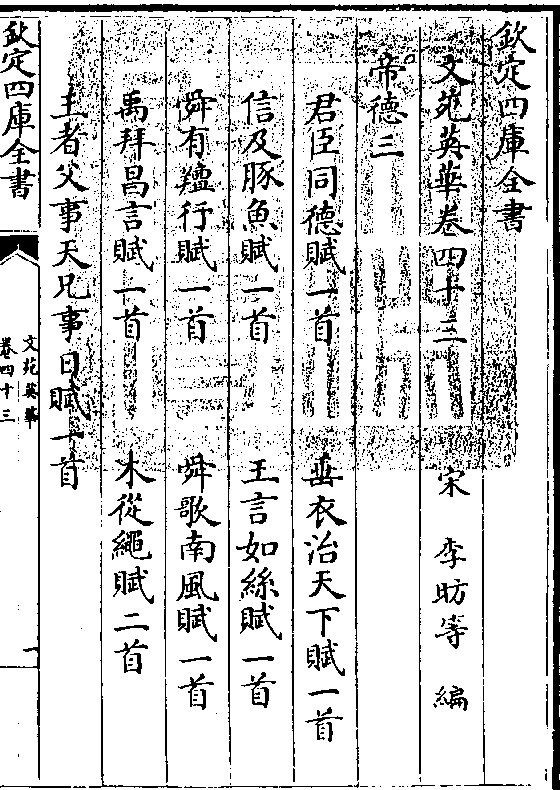 欽定四庫全書
文苑英華卷四十三 宋 李昉等 編
帝德三
君臣同德賦一首 垂衣治天下賦一首
信及豚魚賦一首 王言如絲賦一首
舜有羶行賦一首 舜歌南風賦一首
禹拜昌言賦一首 木從繩賦二首
王者父事天兄事日賦一首
欽定四庫全書
文苑英華
卷四十三
一